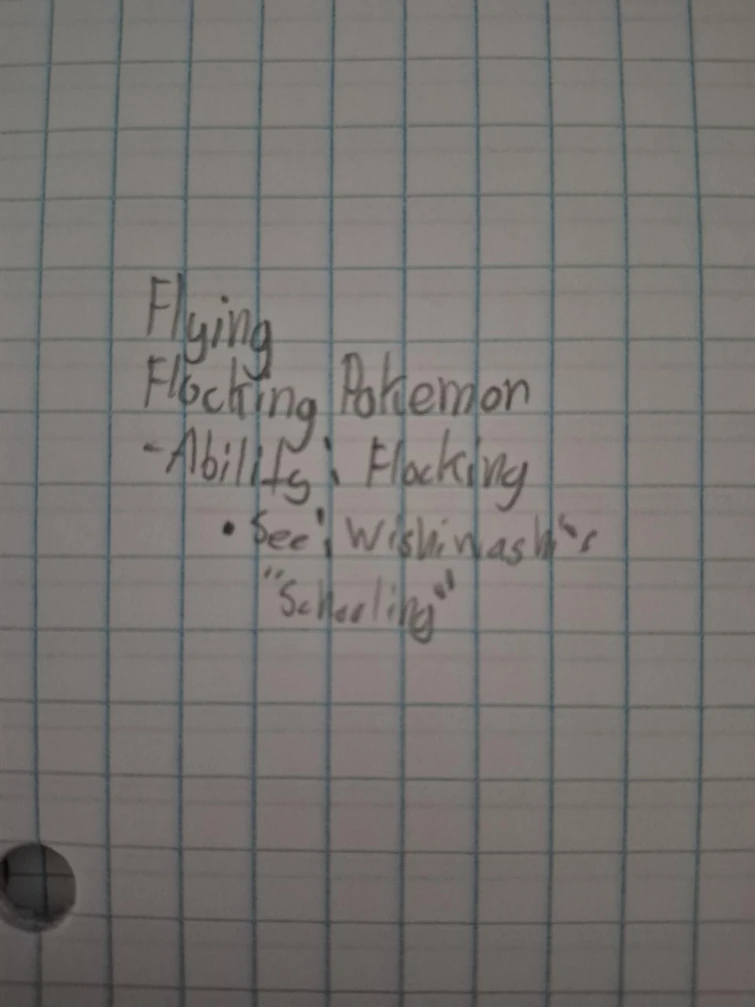 Flying
Flocking Pokemon
-Ability: Flocking
• See: Wishiwashi's
"Schooling"